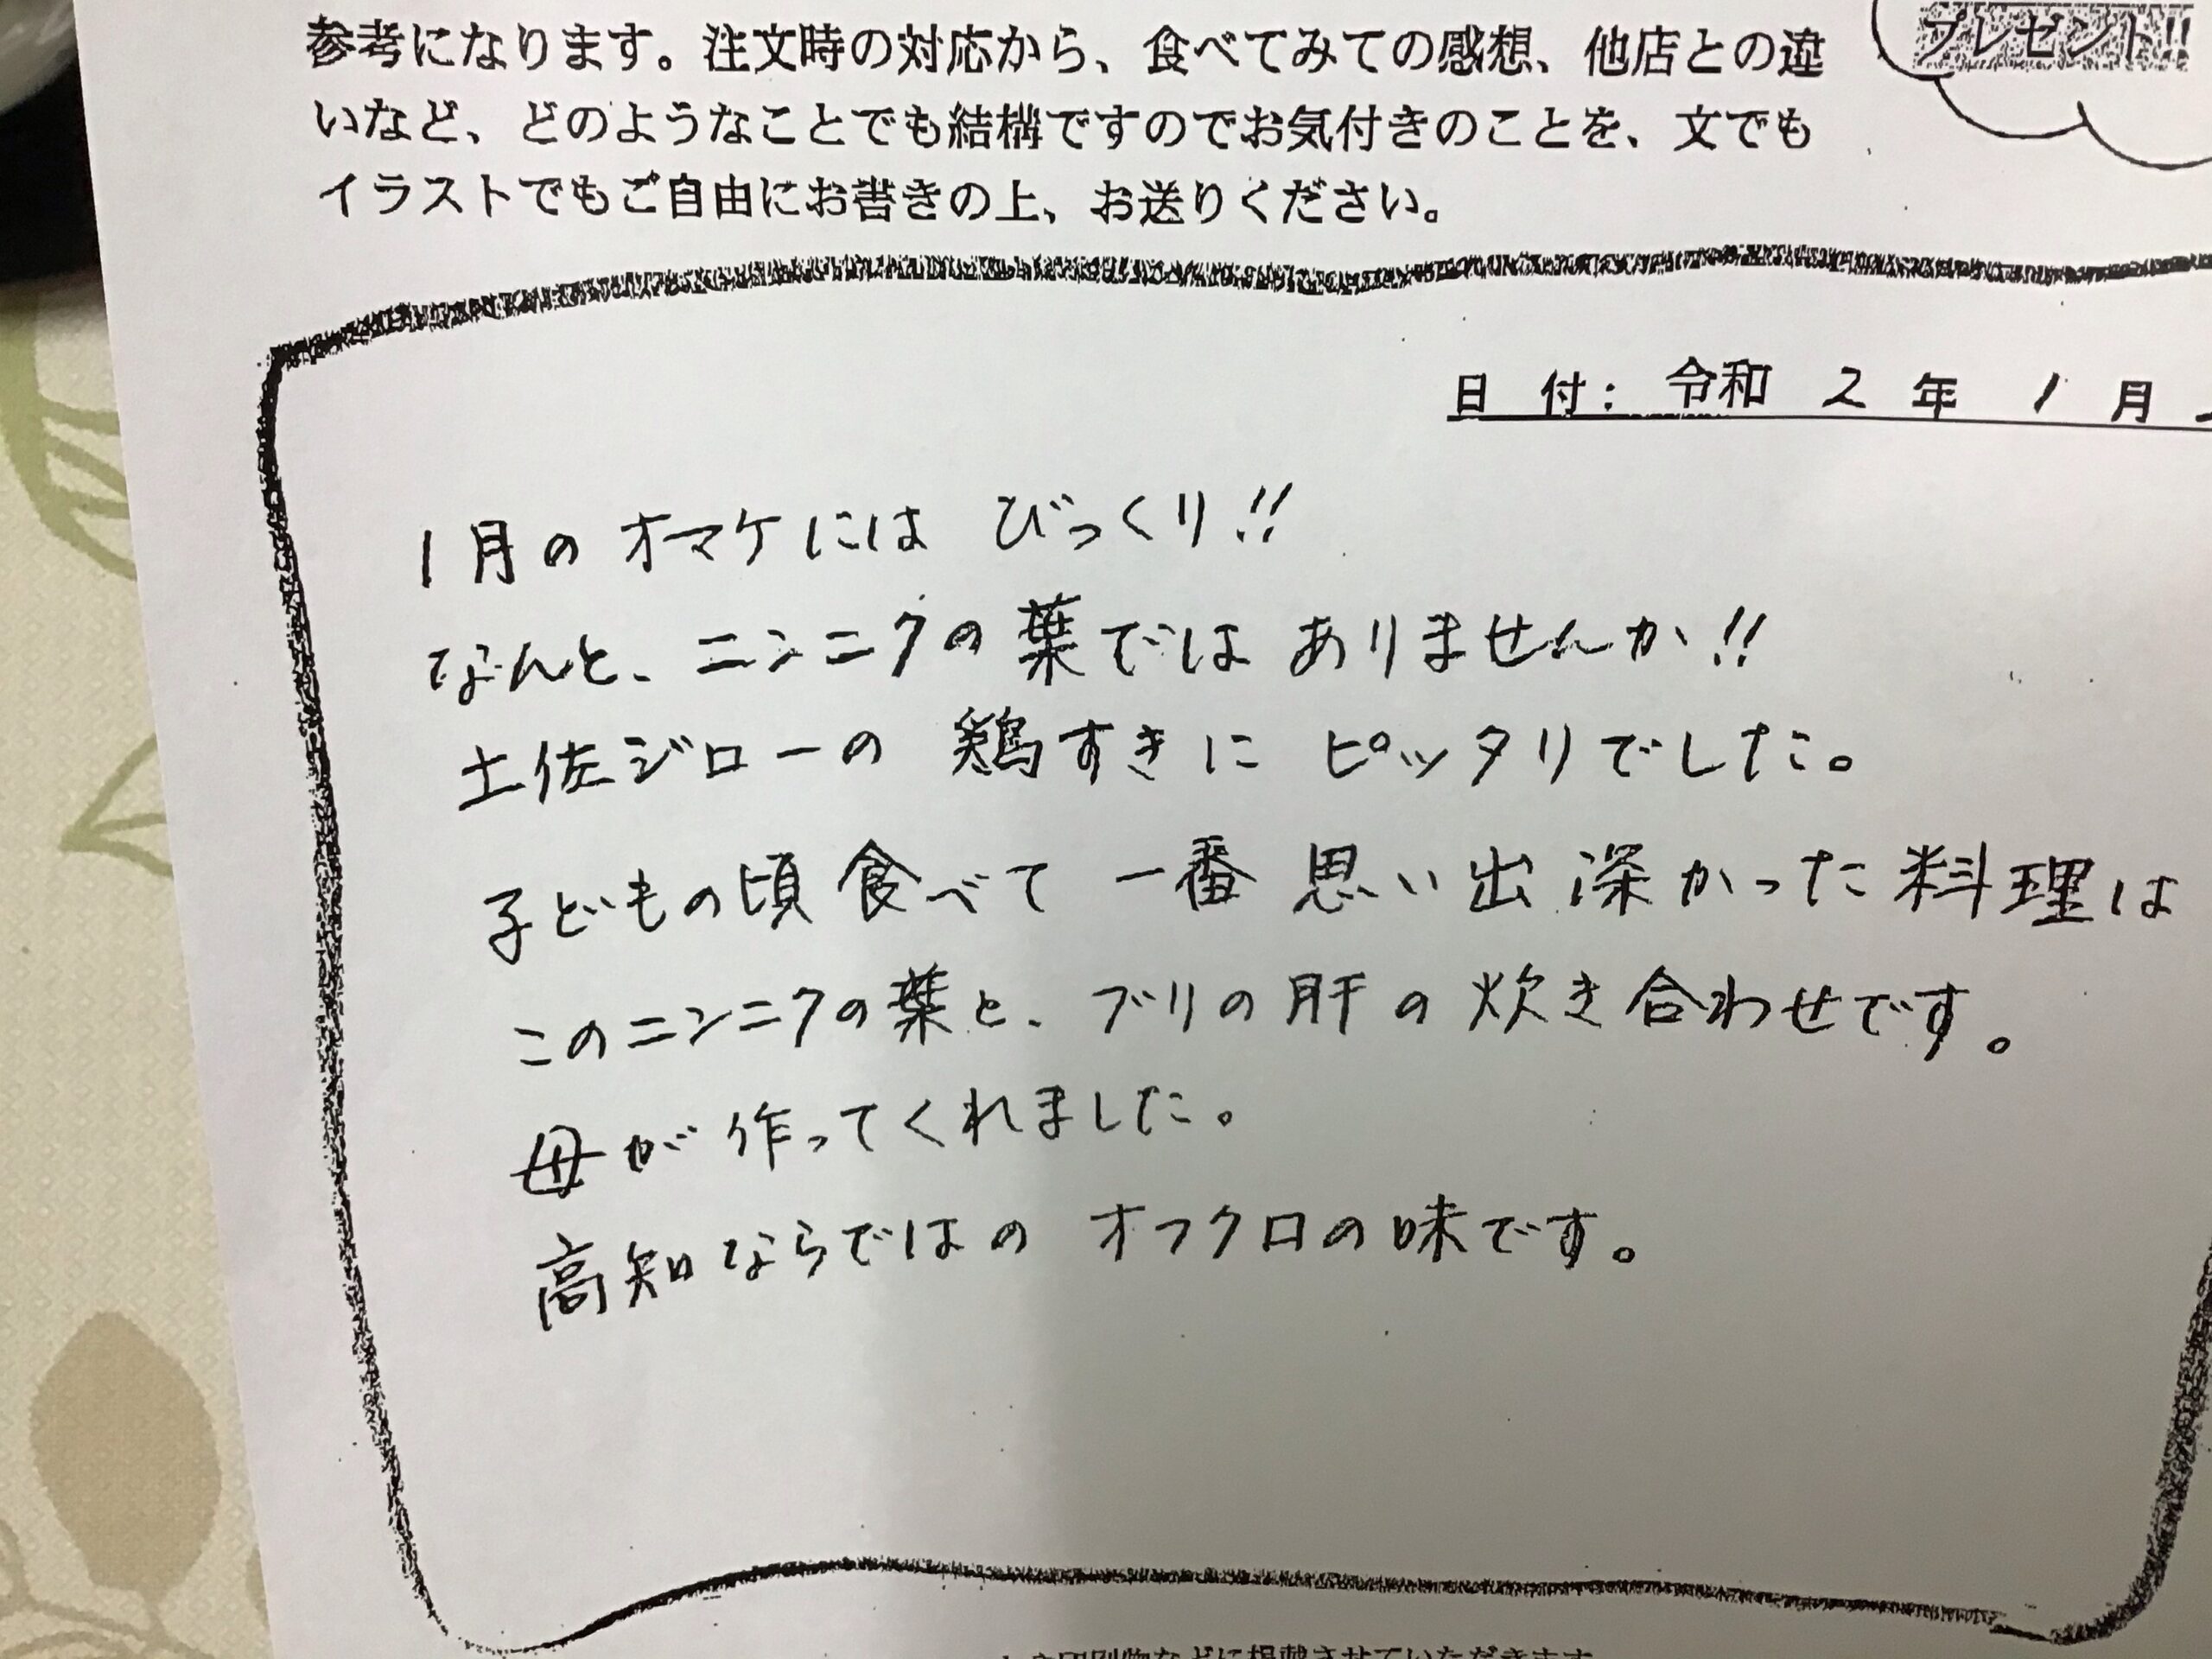 プレゼント!!
参考になります。注文時の対応から、食べてみての感想、他店との違
いなど、どのようなことでも結構ですのでお気付きのことを、文でも
イラストでもご自由にお書きの上、お送りください。
日付：令和2年1月
1月のオマケには びっくり!!
なんと、ニンニクの葉では ありませんか!!
土佐ジローの 鶏すきに ピッタリでした。
子どもの頃 食べて 一番 思い出 深かった料理は
このニンニクの葉と、ブリの肝の炊き合わせです。
母が作ってくれました。
高知ならではの オフクロの味です。
印刷物などに掲載させていただきます